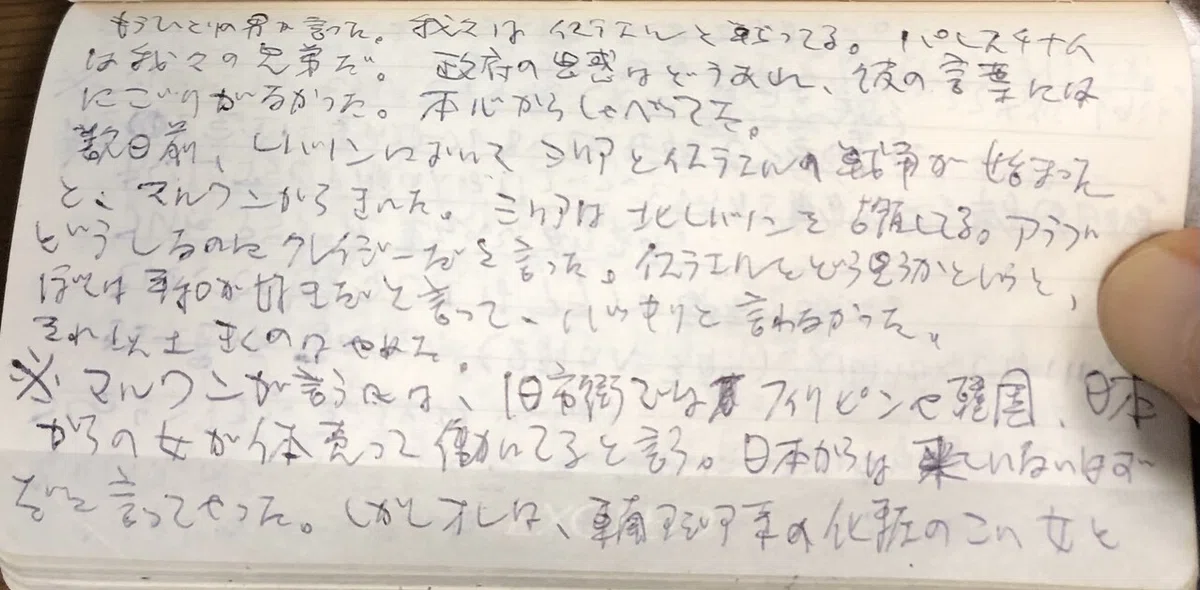 もうひとりの男が言った。我々はイスラエルと戦ってる。パレスチナ人
は我々の兄弟だ。政府の思惑はどうあれ、彼の言葉には
にごりがなかった。本心からしゃべってた。
数日前、レバノンにおいてシリアとイスラエルの戦争が始まった
と、マルワンからきいた。シリアは北レバノンを占領してる。アラブ
というしるのにクレイジーだと言った。イスラエルをどう思うかというと、
ぼくは平和が好きだと言って、はっきりと言わなかった。
それ以上きくのはやめた。
※マルワンが言うには、旧市街ではフィリピンや韓国、日本
からの女が体売って働いてると言う。日本からは来ていないはず
だと言ってやった。しかしオレは、東南アジア系の化粧のこい女と